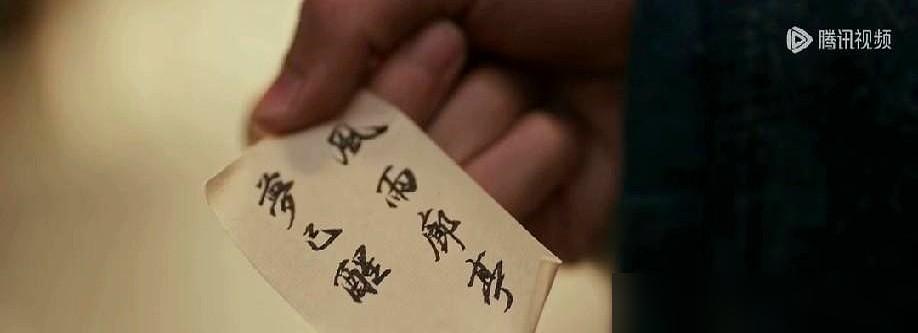 腾讯视频
風雨廊亭
夢已醒